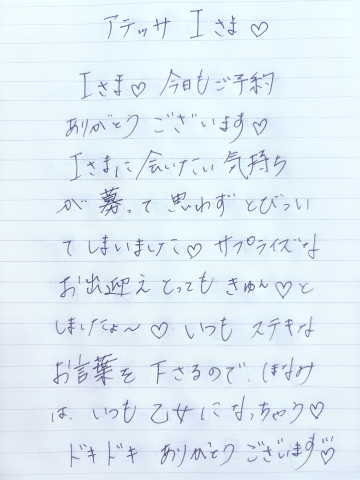 アテッサ Iさま♡
Iさま♡ 今日もご予約
ありがとう ございます♡
Iさまに 会いたい 気持ち
が 募って 思わず とびつい
てしまいました♡ サプライズな
お出迎え とっても きゅん♡と
しましたょ〜♡ いつも ステキな
お言葉を 下さるので、ほなみ
は、いつも 乙女に なっちゃう♡
ドキドキ ありがとう ございます♡